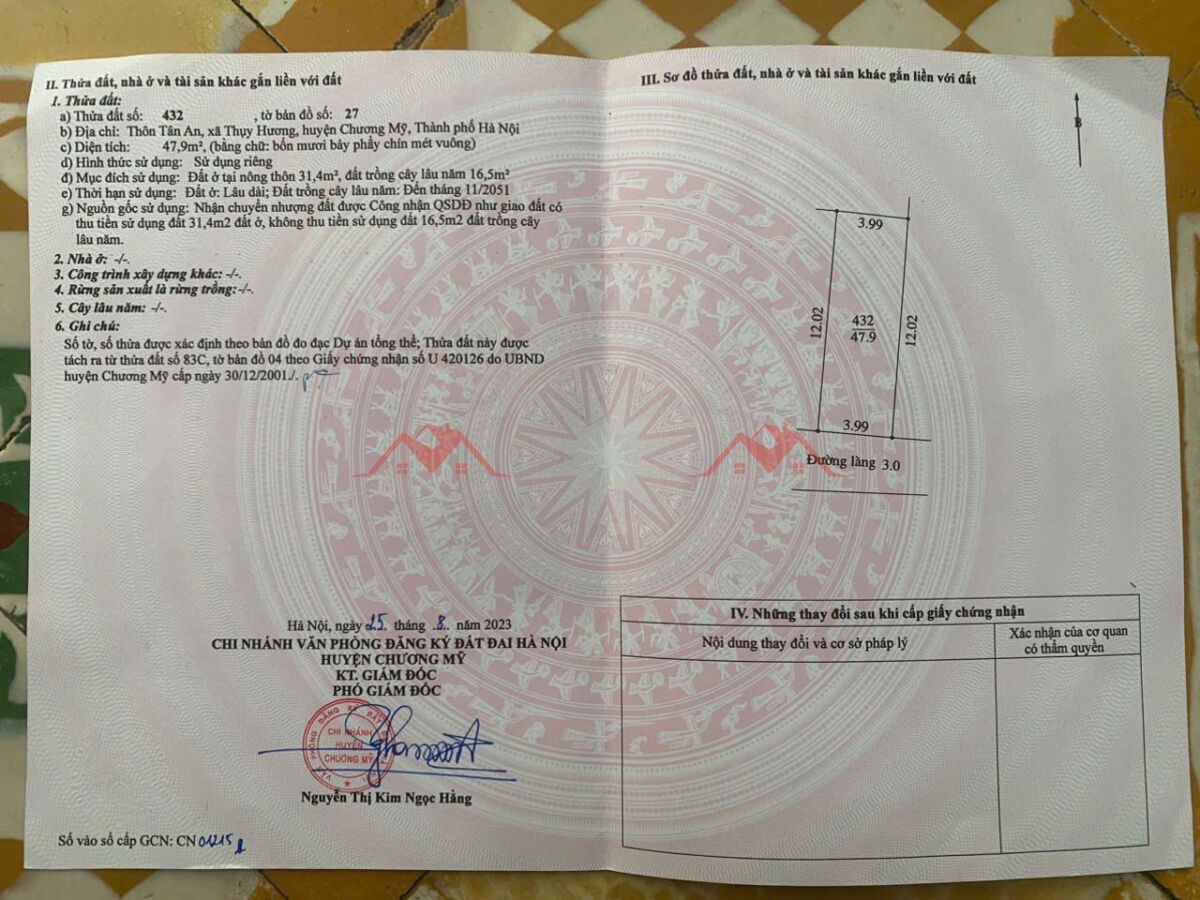 II. Thửa đất, nhà ở và tài sản khác gắn liền với đất
1. Thửa đất:
a) Thửa đất số: 432 , tờ bản đồ số: 27
b) Địa chỉ: Thôn Tân An, xã Thụy Hương, huyện Chương Mỹ, Thành phố Hà Nội
c) Diện tích: 47,9m², (bằng chữ: bốn mươi bảy phẩy chín mét vuông)
d) Hình thức sử dụng: Sử dụng riêng
đ) Mục đích sử dụng: Đất ở tại nông thôn 31,4m², đất trồng cây lâu năm 16,5m²
e) Thời hạn sử dụng: Đất ở: Lâu dài; Đất trồng cây lâu năm: Đến tháng 11/2051
g) Nguồn gốc sử dụng: Nhận chuyển nhượng đất được Công nhận QSDĐ như giao đất có
thu tiền sử dụng đất 31,4m2 đất ở, không thu tiền sử dụng đất 16,5m2 đất trồng cây
lâu năm.
2. Nhà ở: -/-.
3. Công trình xây dựng khác: -/-.
4. Rừng sản xuất là rừng trồng: -/-.
5. Cây lâu năm: -/-.
6. Ghi chú:
Số tờ, số thửa được xác định theo bản đồ đo đạc Dự án tổng thể; Thửa đất này được
tách ra từ thửa đất số 83C, tờ bản đồ 04 theo Giấy chứng nhận số U 420126 do UBND
huyện Chương Mỹ cấp ngày 30/12/2001./.
Hà Nội, ngày 25 tháng 8 năm 2023
CHI NHÁNH VĂN PHÒNG ĐĂNG KÝ ĐẤT ĐAI HÀ NỘI
HUYỆN CHƯƠNG MỸ
KT. GIÁM ĐỐC
PHÓ GIÁM ĐỐC
VĂN PHÒNG ĐĂNG KÝ ĐẤT
CHI NHÁNH
HUYỆN
CHƯƠNG MỸ
Nguyễn Thị Kim Ngọc Hằng
Số vào sổ cấp GCN: CN 01215
III. Sơ đồ thửa đất, nhà ở và tài sản khác gắn liền với đất
B
3.99
12.02
432
47.9
12.02
3.99
Đường làng 3.0
IV. Những thay đổi sau khi cấp giấy chứng nhận
Nội dung thay đổi và cơ sở pháp lý
Xác nhận của cơ quan
có thẩm quyền